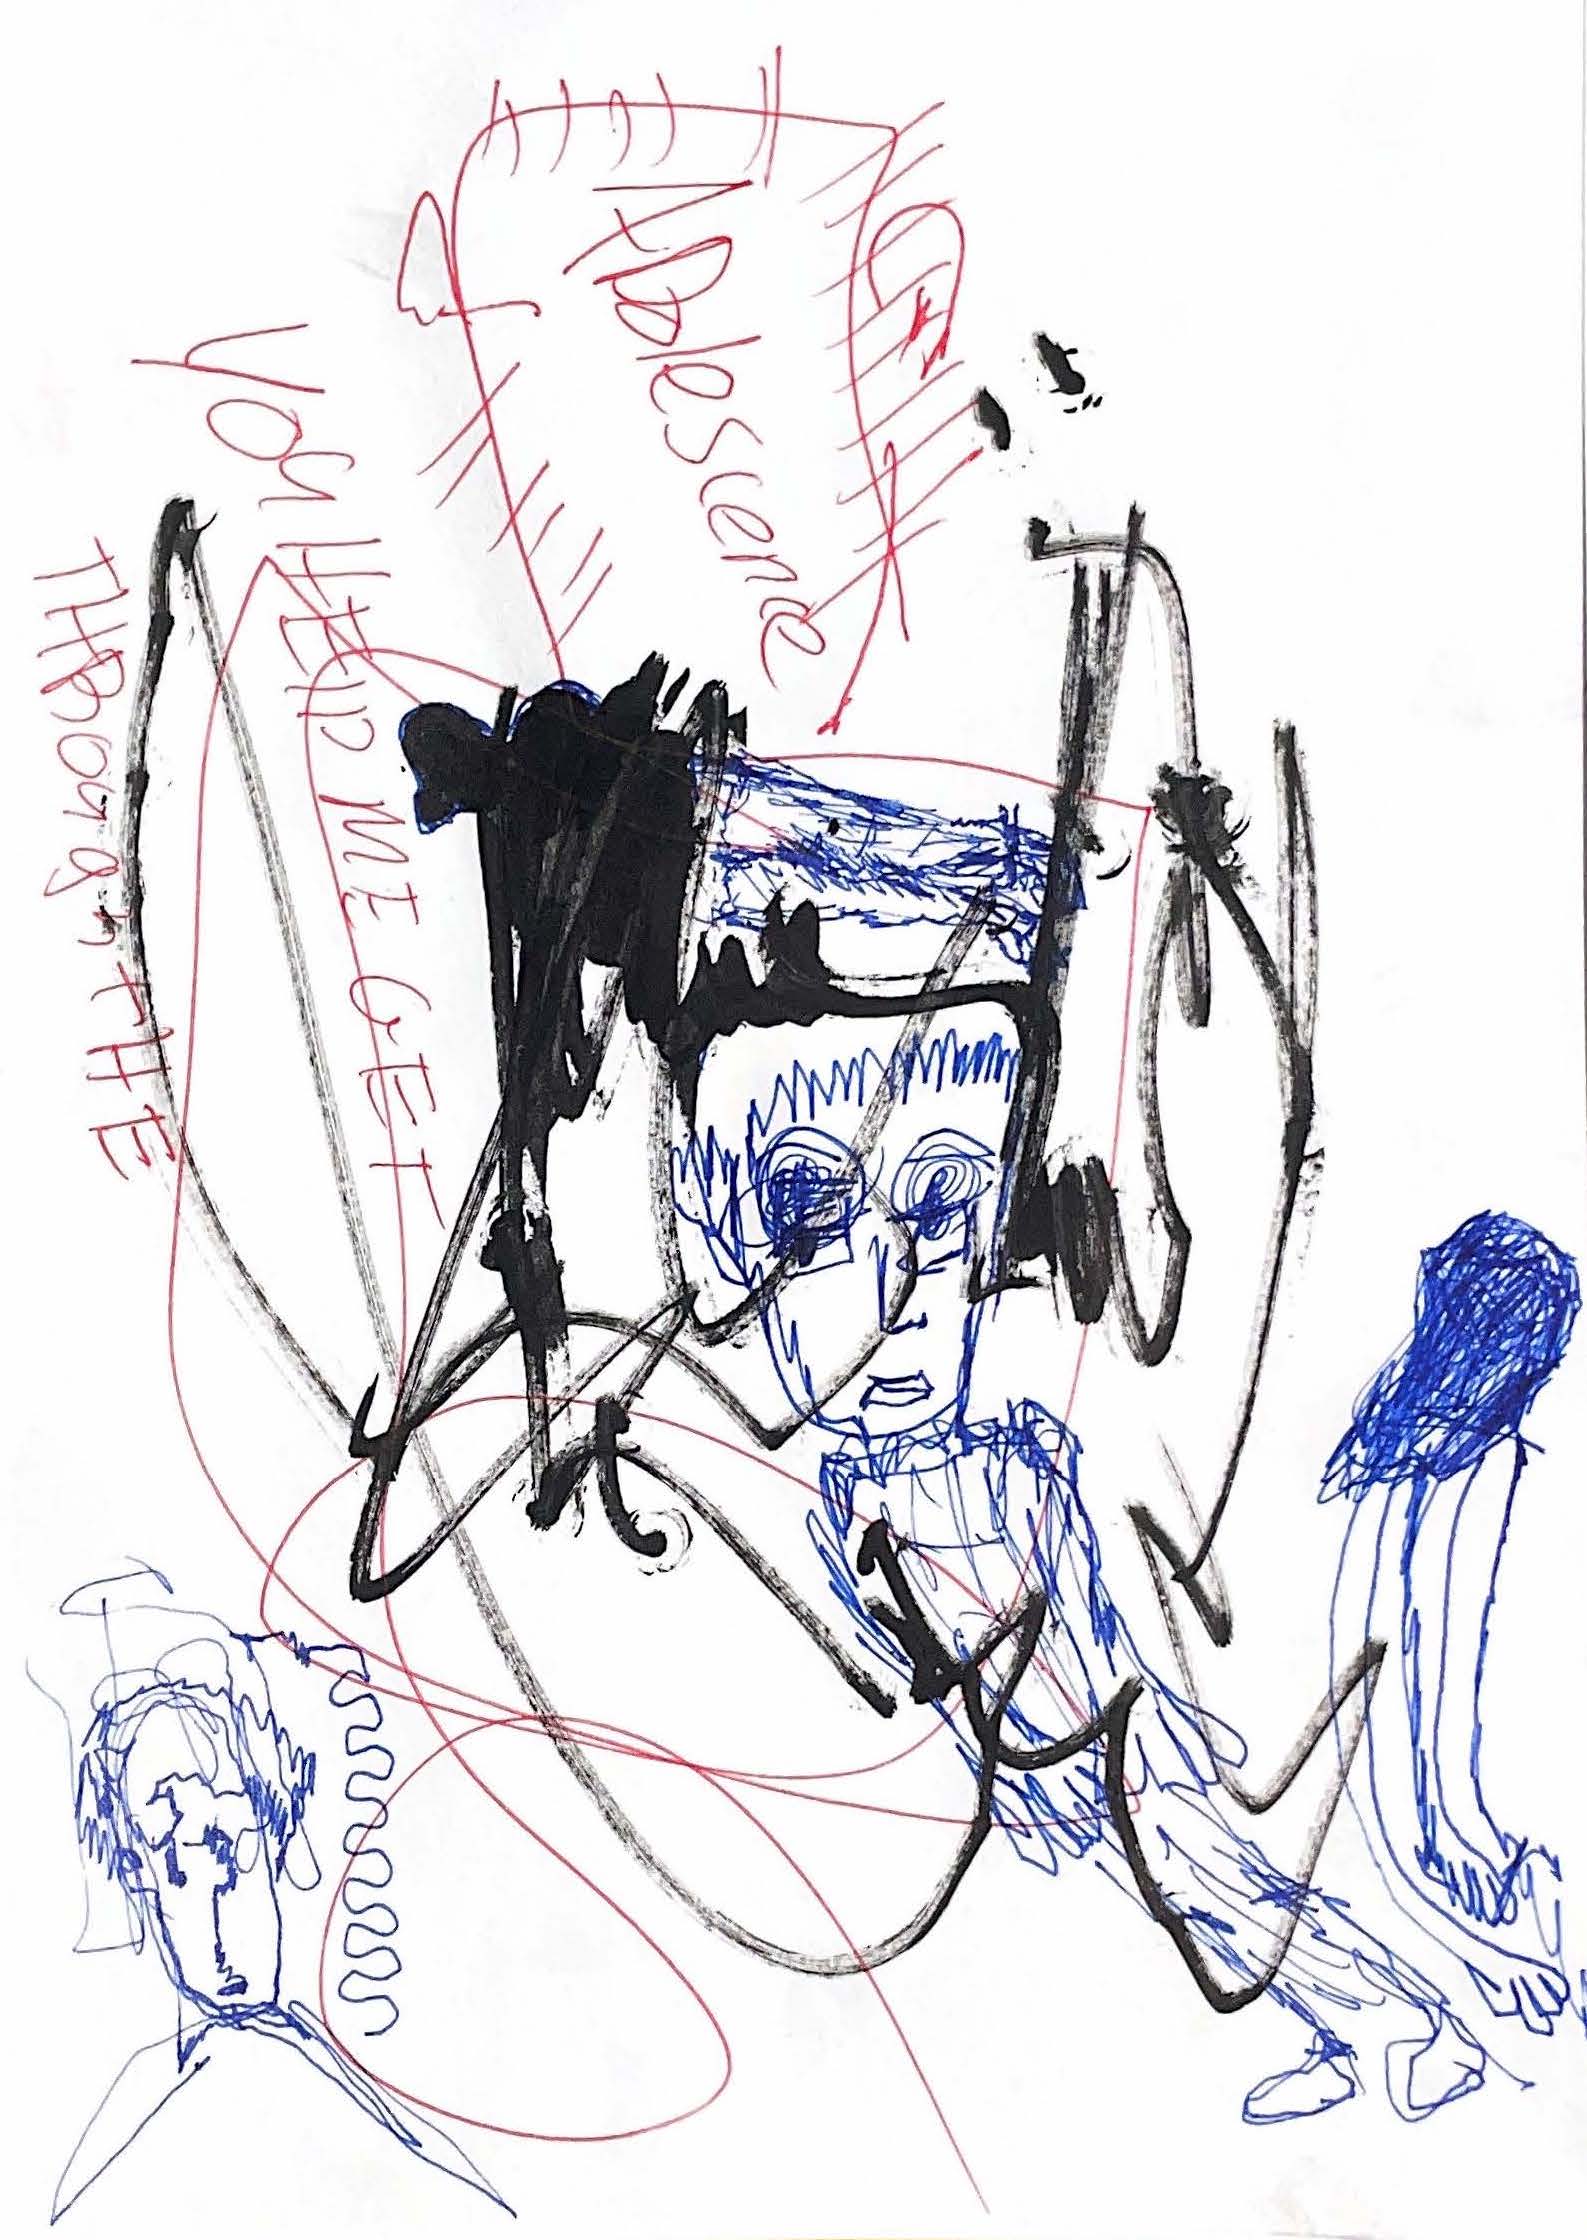 Adolescence
YOu HElP ME GET
THROugh tHE